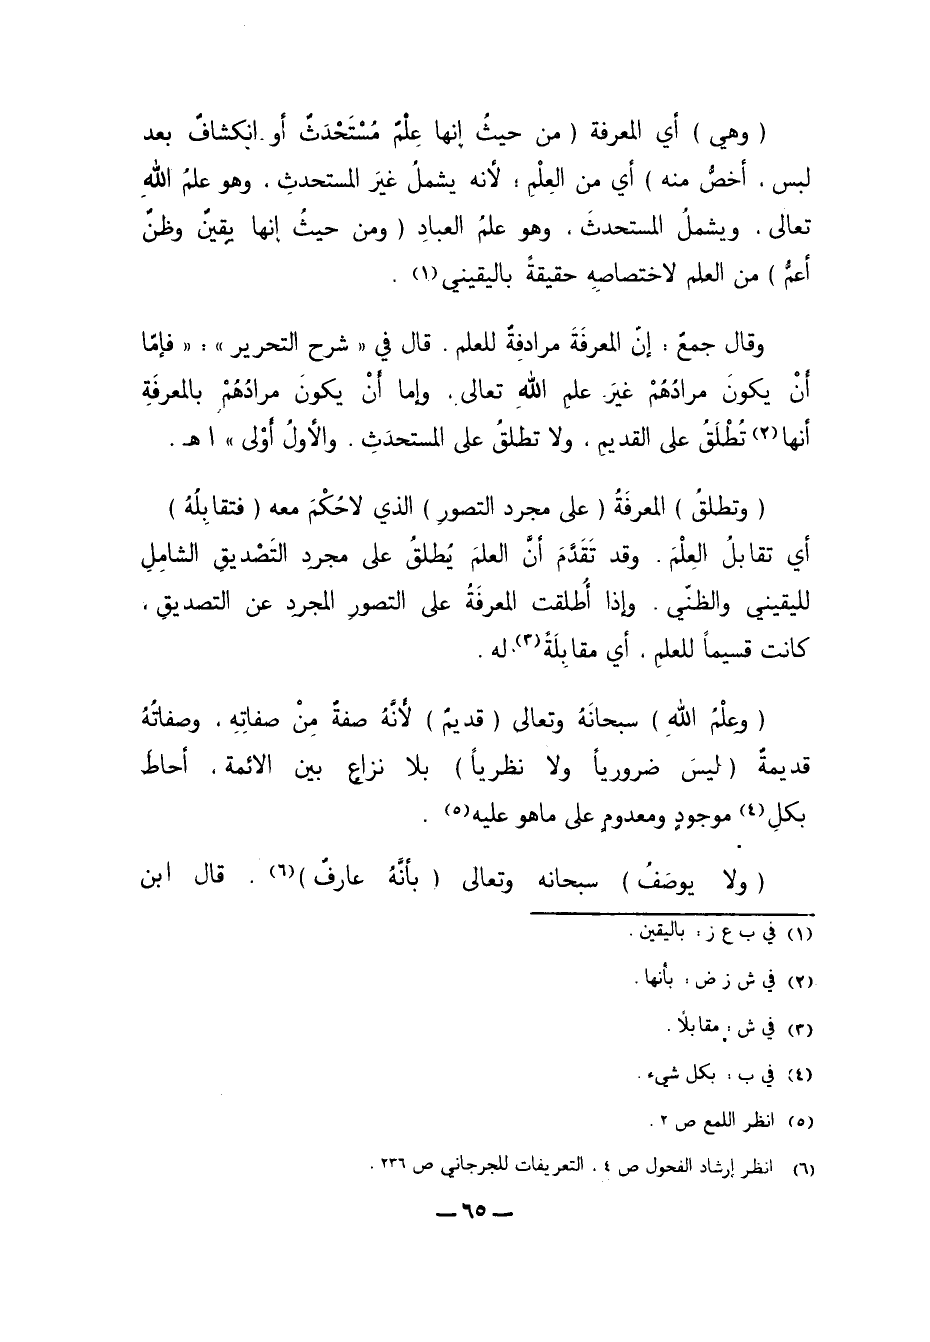 ( وهي ) أي المعرفة ( من حيثُ إنها عِلْمٌ مُسْتَحْدَثٌ أو انكشافٌ بعد
لبس ، أخصُّ منه ) أي من العِلْمِ ؛ لأنه يشملُ غيرَ المستحدثِ ، وهو علمُ اللهِ
تعالى ، ويشملُ المستحدثَ ، وهو علمُ العبادِ ( ومن حيثُ إنها يقينٌ وظنٌّ
أعمُّ ) من العلم لاختصاصِهِ حقيقةً باليقيني(١) .
وقال جمعٌ : إنّ المعرفَةَ مرادفةٌ للعلم . قال في « شرح التحرير » : « فإمّا
أَنْ يكونَ مرادُهُمْ غيرَ علمِ اللهِ تعالى ، وإما أَنْ يكونَ مرادُهُمْ بالمعرفَةِ
أنها(٢) تُطْلَقُ على القديمِ ، ولا تطلقُ على المستحدَثِ . والأولُ أَوْلى » ا هـ .
( وتطلقُ ) المعرفَةُ ( على مجرد التصورِ ) الذي لاحُكْمَ معه ( فتقابِلُهُ )
أي تقابلُ العِلْمَ . وقد تَقَدَّمَ أنَّ العلمَ يُطلقُ على مجردِ التَصْديقِ الشاملِ
لليقيني والظنّي . وإذا أُطلقت المعرفَةُ على التصورِ المجردِ عن التصديقِ ،
كانت قسيماً للعلمِ ، أي مقابِلَةً(٣) له .
( وعِلْمُ اللهِ ) سبحانَهُ وتعالى ( قديمٌ ) لأنَّهُ صفةٌ مِنْ صفاتِهِ ، وصفاتُهُ
قديمةٌ ( ليسَ ضرورياً ولا نظرياً ) بلا نزاعٍ بين الائمة ، أحاطَ
بكلِ(٤) موجودٍ ومعدومٍ على ماهو عليه(٥) .
( ولا يوصَفُ ) سبحانه وتعالى ( بأنَّهُ عارفٌ )(٦) . قال ابن
(١) في ب ع ز : باليقين .
(٢) في ش ز ض : بأنها .
(٣) في ش : مقابلًا .
(٤) في ب : بكل شيء .
(٥) انظر اللمع ص ٢ .
(٦) انظر إرشاد الفحول ص ٤ ، التعريفات للجرجاني ص ٢٣٦ .
— ٦٥ —